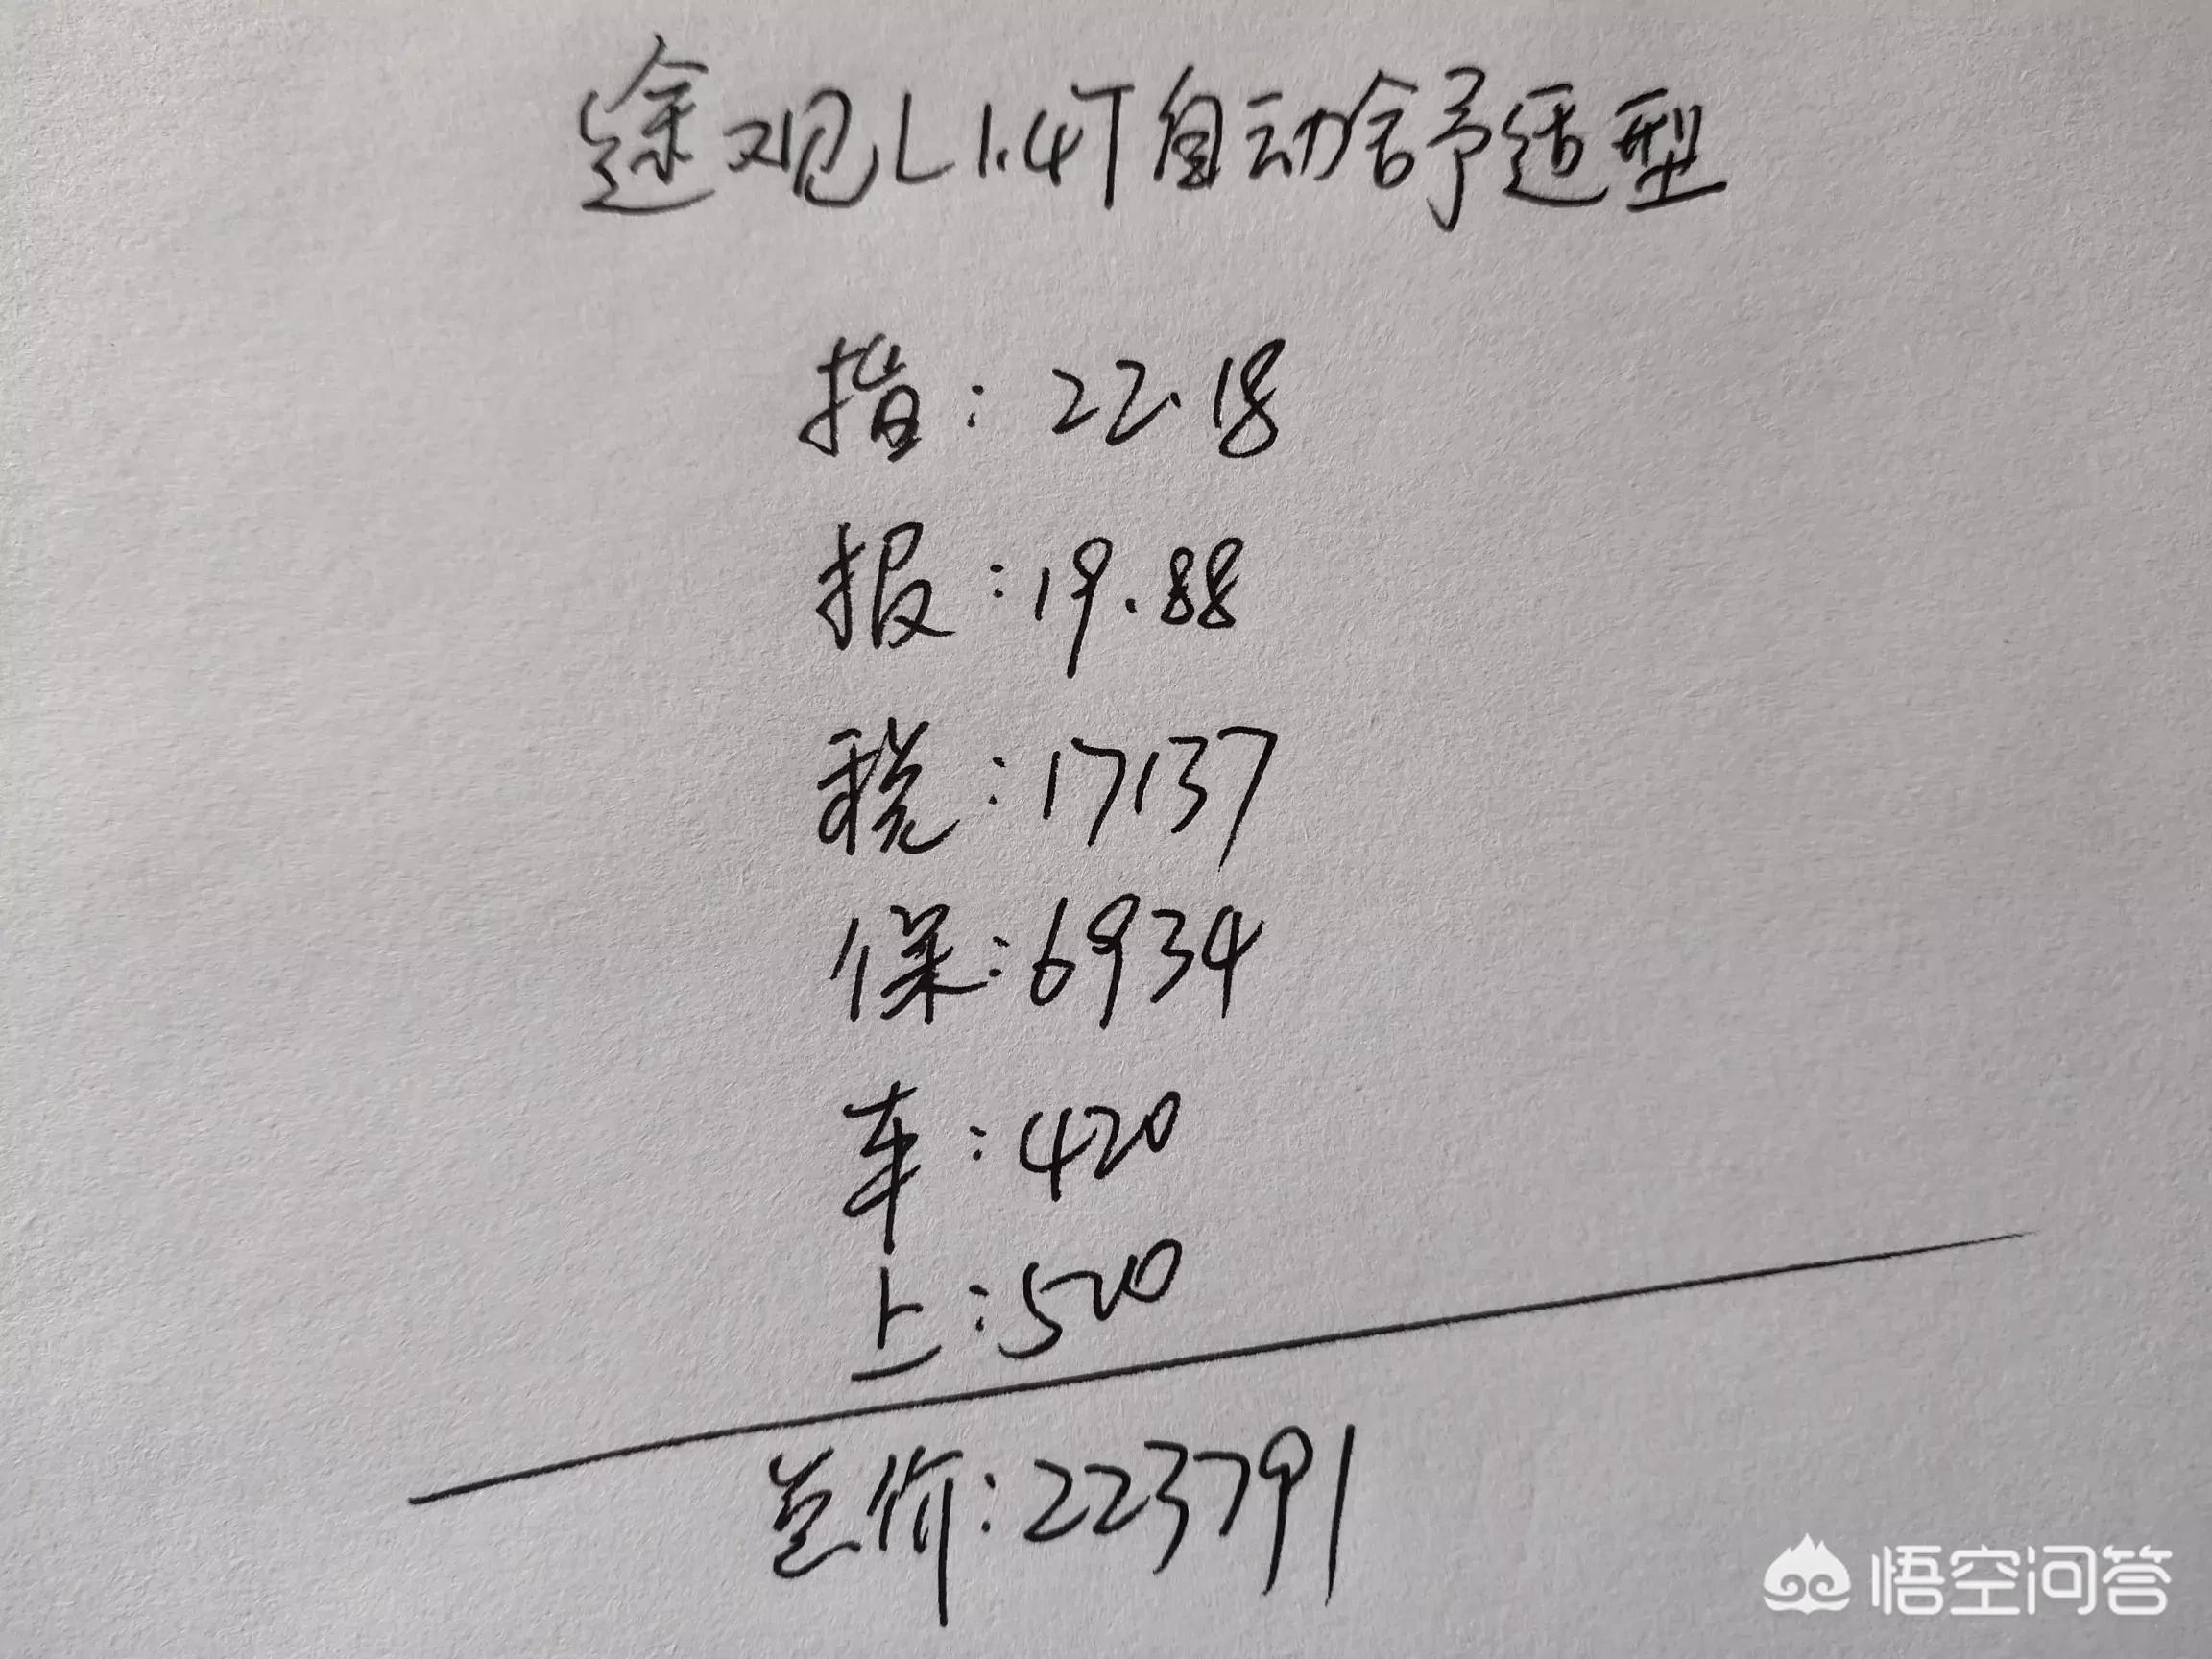 途观L1.4T自动舒适型
指:22.18
报:19.88
税:17137
保:6934
车:420
上:500
总价:223791
悟空问答